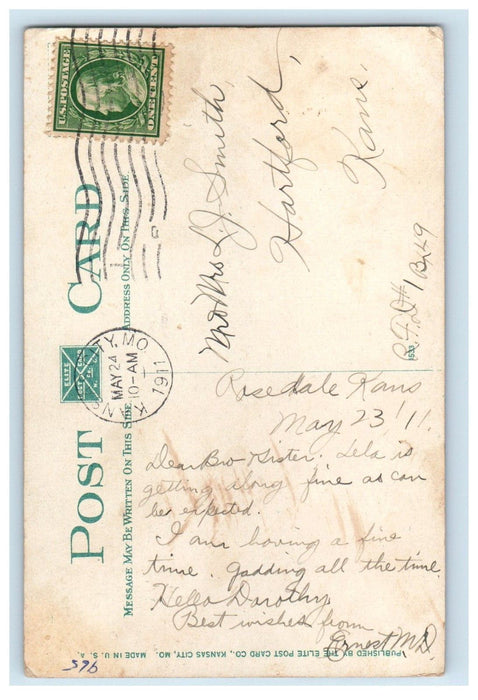 POST CARD
ELITE
MESSAGE MAY BE WRITTEN ON THIS SIDE
ADDRESS ONLY ON THIS SIDE
U.S. POSTAGE
ONE CENT
KANSAS CITY, MO.
MAY 24
10-AM
1911
Mr & Mrs L. J. Smith,
Hartford,
Kans.
R.F.D. #1 Bx 49
1533
Rosedale Kans
May 23 '11.
Dear Bro & Sister. Lela is
getting along fine as can
be expected.
I am having a fine
time. gadding all the time.
Hello Dorothy.
Best wishes from
Ernest M D.
PUBLISHED BY THE ELITE POST CARD CO., KANSAS CITY, MO. MADE IN U. S. A.